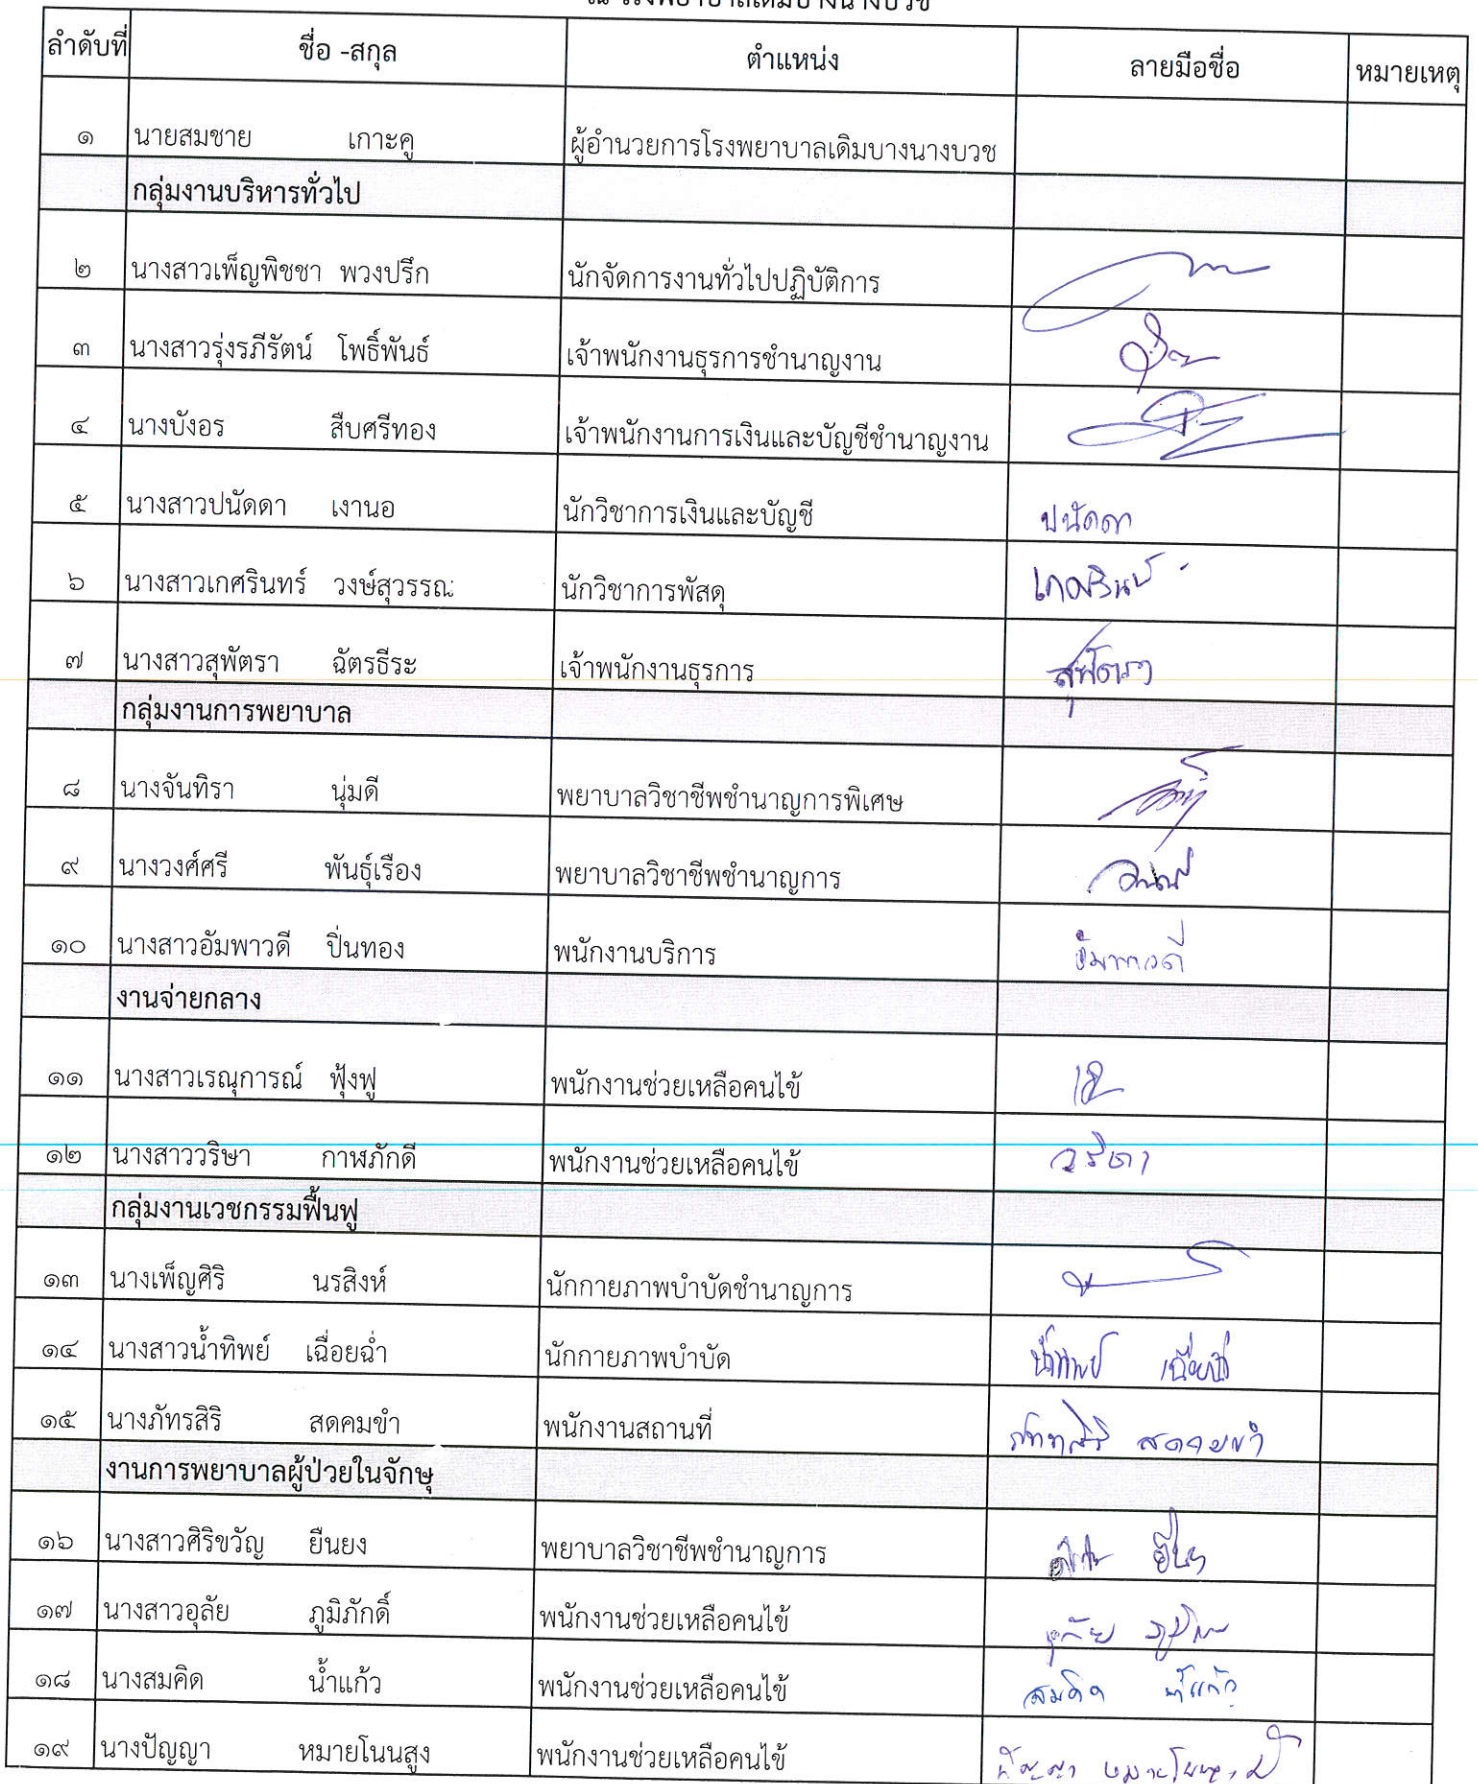 ลำดับที่ ชื่อ -สกุล ตำแหน่ง ลายมือชื่อ หมายเหตุ
๑ นายสมชาย เกาะคู ผู้อำนวยการโรงพยาบาลเดิมบางนางบวช
กลุ่มงานบริหารทั่วไป
๒ นางสาวเพ็ญพิชชา พวงปรึก นักจัดการงานทั่วไปปฏิบัติการ
๓ นางสาวรุ่งรภีรัตน์ โพธิ์พันธ์ เจ้าพนักงานธุรการชำนาญงาน
๔ นางบังอร สืบศรีทอง เจ้าพนักงานการเงินและบัญชีชำนาญงาน
๕ นางสาวปนัดดา เงานอ นักวิชาการเงินและบัญชี ปนัดดา
๖ นางสาวเกศรินทร์ วงษ์สุวรรณ นักวิชาการพัสดุ
๗ นางสาวสุพัตรา ฉัตรธีระ เจ้าพนักงานธุรการ สุพัตรา
กลุ่มงานการพยาบาล
๘ นางจันทิรา นุ่มดี พยาบาลวิชาชีพชำนาญการพิเศษ
๙ นางวงศ์ศรี พันธุ์เรือง พยาบาลวิชาชีพชำนาญการ
๑๐ นางสาวอัมพาวดี ปิ่นทอง พนักงานบริการ อัมพาวดี
งานจ่ายกลาง
๑๑ นางสาวเรณุการณ์ ฟุ้งฟู พนักงานช่วยเหลือคนไข้
๑๒ นางสาววริษา กาฬภักดี พนักงานช่วยเหลือคนไข้ วริษา
กลุ่มงานเวชกรรมฟื้นฟู
๑๓ นางเพ็ญศิริ นรสิงห์ นักกายภาพบำบัดชำนาญการ
๑๔ นางสาวน้ำทิพย์ เฉื่อยฉ่ำ นักกายภาพบำบัด น้ำทิพย์ เฉื่อยฉ่ำ
๑๕ นางภัทรสิริ สดคมขำ พนักงานสถานที่ ภัทรสิริ สดคมขำ
งานการพยาบาลผู้ป่วยในจักษุ
๑๖ นางสาวศิริขวัญ ยืนยง พยาบาลวิชาชีพชำนาญการ
๑๗ นางสาวอุลัย ภูมิภักดิ์ พนักงานช่วยเหลือคนไข้
๑๘ นางสมคิด น้ำแก้ว พนักงานช่วยเหลือคนไข้ สมคิด น้ำแก้ว
๑๙ นางปัญญา หมายโนนสูง พนักงานช่วยเหลือคนไข้ ปัญญา หมายโนนสูง